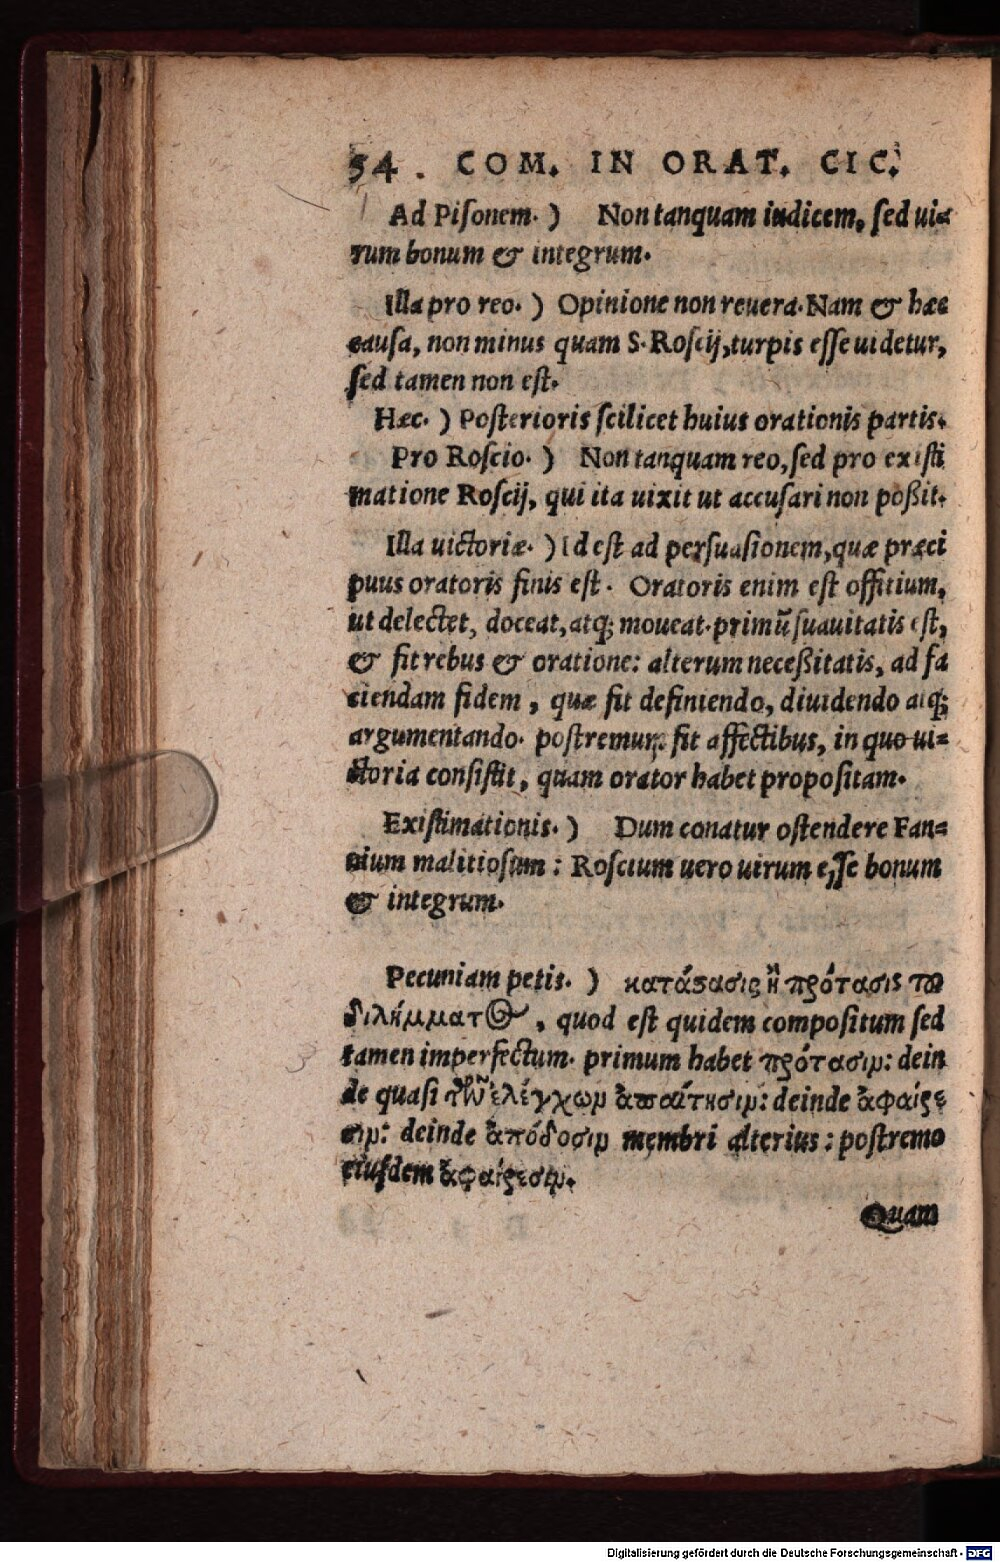 54. COM. IN ORAT. CIC.
Ad Piſonem. ) Non tanquam iudicem, ſed ui=
rum bonum & integrum.
Illa pro reo. ) Opinione non reuera. Nam & hæc
cauſa, non minus quam S. Roſcij, turpis eſſe uidetur,
ſed tamen non eſt.
Hæc. ) Poſterioris ſcilicet huius orationis partis.
Pro Roſcio. ) Non tanquam reo, ſed pro exiſti
matione Roſcij, qui ita uixit ut accuſari non poßit.
Illa uictoriæ. ) Id eſt ad perſuaſionem, quæ præci
puus oratoris finis eſt. Oratoris enim eſt offitium,
ut delectet, doceat, atq; moueat. primũ ſuauitatis eſt,
& fit rebus & oratione: alterum neceßitatis, ad fa
ciendam fidem, quæ fit definiendo, diuidendo atq;
argumentando. poſtremum fit affectibus, in quo ui=
ctoria conſiſtit, quam orator habet propoſitam.
Exiſtimationis. ) Dum conatur oſtendere Fan=
nium malitioſum: Roſcium uero uirum eſſe bonum
& integrum.
Pecuniam petis. ) κατάστασις ἢ πρότασις τοῦ
διλήμματος, quod eſt quidem compoſitum ſed
tamen imperfectum. primum habet πρότασιν: dein
de quaſi τῶν ἐλέγχων ἀπαίτησιν: deinde ἀφαίρε
σιν: deinde ἀπόδοσιν membri alterius: poſtremo
eiuſdem ἀφαίρεσιν.
Quam
Digitalisierung gefördert durch die Deutsche Forschungsgemeinschaft - DFG